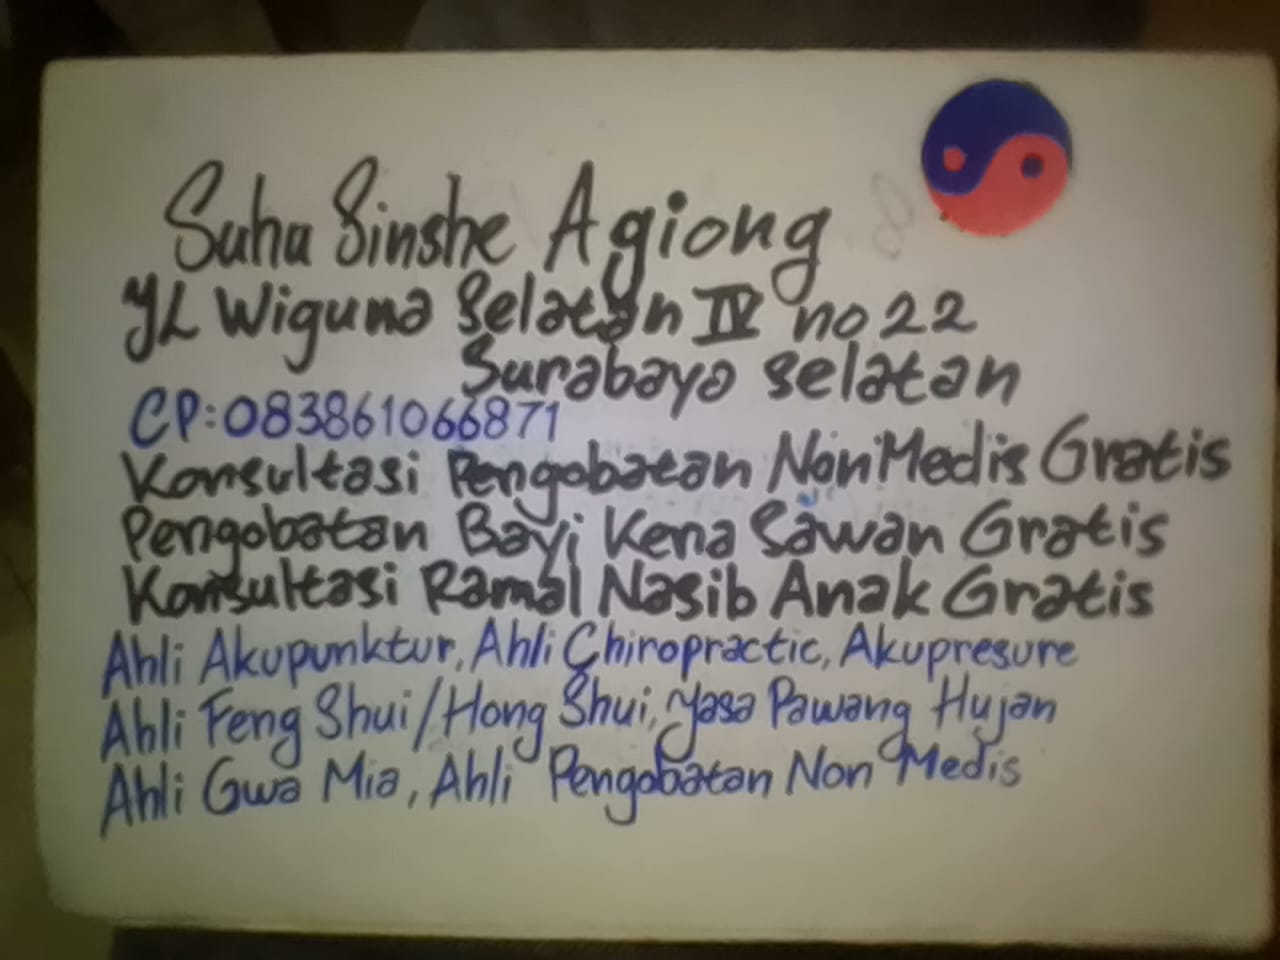 Suhu Sinshe Agiong
JL Wiguna Selatan IV no 22
Surabaya Selatan
CP:083861066871
Konsultasi Pengobatan Non Medis Gratis
Pengobatan Bayi Kena Sawan Gratis
Konsultasi Ramal Nasib Anak Gratis
Ahli Akupunktur, Ahli Chiropractic, Akupresure
Ahli Feng Shui/Hong Shui, Jasa Pawang Hujan
Ahli Gwa Mia, Ahli Pengobatan Non Medis